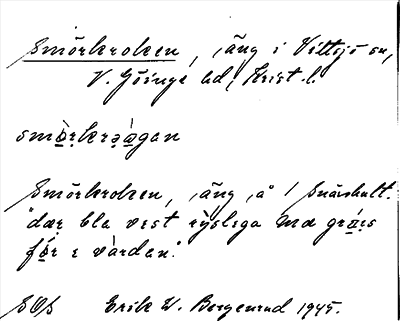 Smörkroken, äng i Vittsjö sn,
V. Göinge hd, Krist. l.
smö̀rkrǻgan
Smörkroken, äng å 1 Snärshult.
"dær bla vest rysliga mö gräs
för i vårdan."
SOS Erik W. Bergenrud 1945.